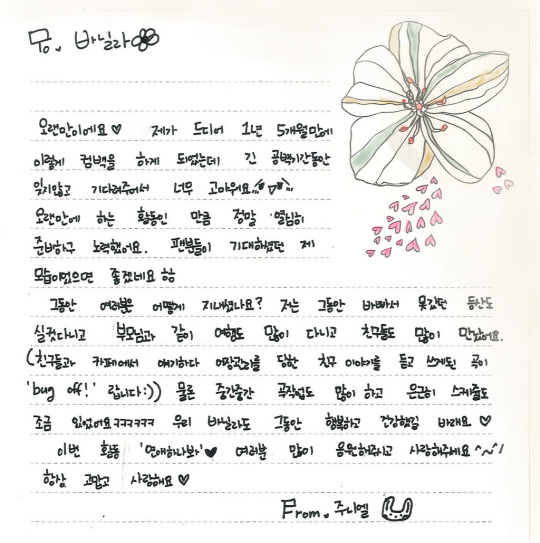 To. 바닐라
오랜만이에요♡ 제가 드디어 1년 5개월만에
이렇게 컴백을 하게 되었는데 긴 공백기간동안
잊지않고 기다려주어서 너무 고마워요
오랜만에 하는 활동인 만큼 정말 열심히
준비하구 노력했어요. 팬분들이 기대하셨던 제
모습이었으면 좋겠네요 ㅎㅎ
그동안 여러분은 어떻게 지내셨나요? 저는 그동안 바빠서 못갔던 등산도
실컷다니고 부모님과 같이 여행도 많이 다니고 친구들도 많이 만났어요.
(친구들과 카페에서 얘기하다 어장관리를 당한 친구 이야기를 듣고 쓰게된 곡이
'bug off!' 랍니다:)) 물론 중간중간 곡작업도 많이 하고 은근히 스케줄도
조금 있었어요ㅋㅋㅋㅋㅋㅋ 우리 바닐라도 그동안 행복하고 건강했길 바래요♡
이번 활동 '연애하나봐'♥ 여러분 많이 응원해주시고 사랑해주세요^~^!
항상 고맙고 사랑해요♡
From. 주니엘